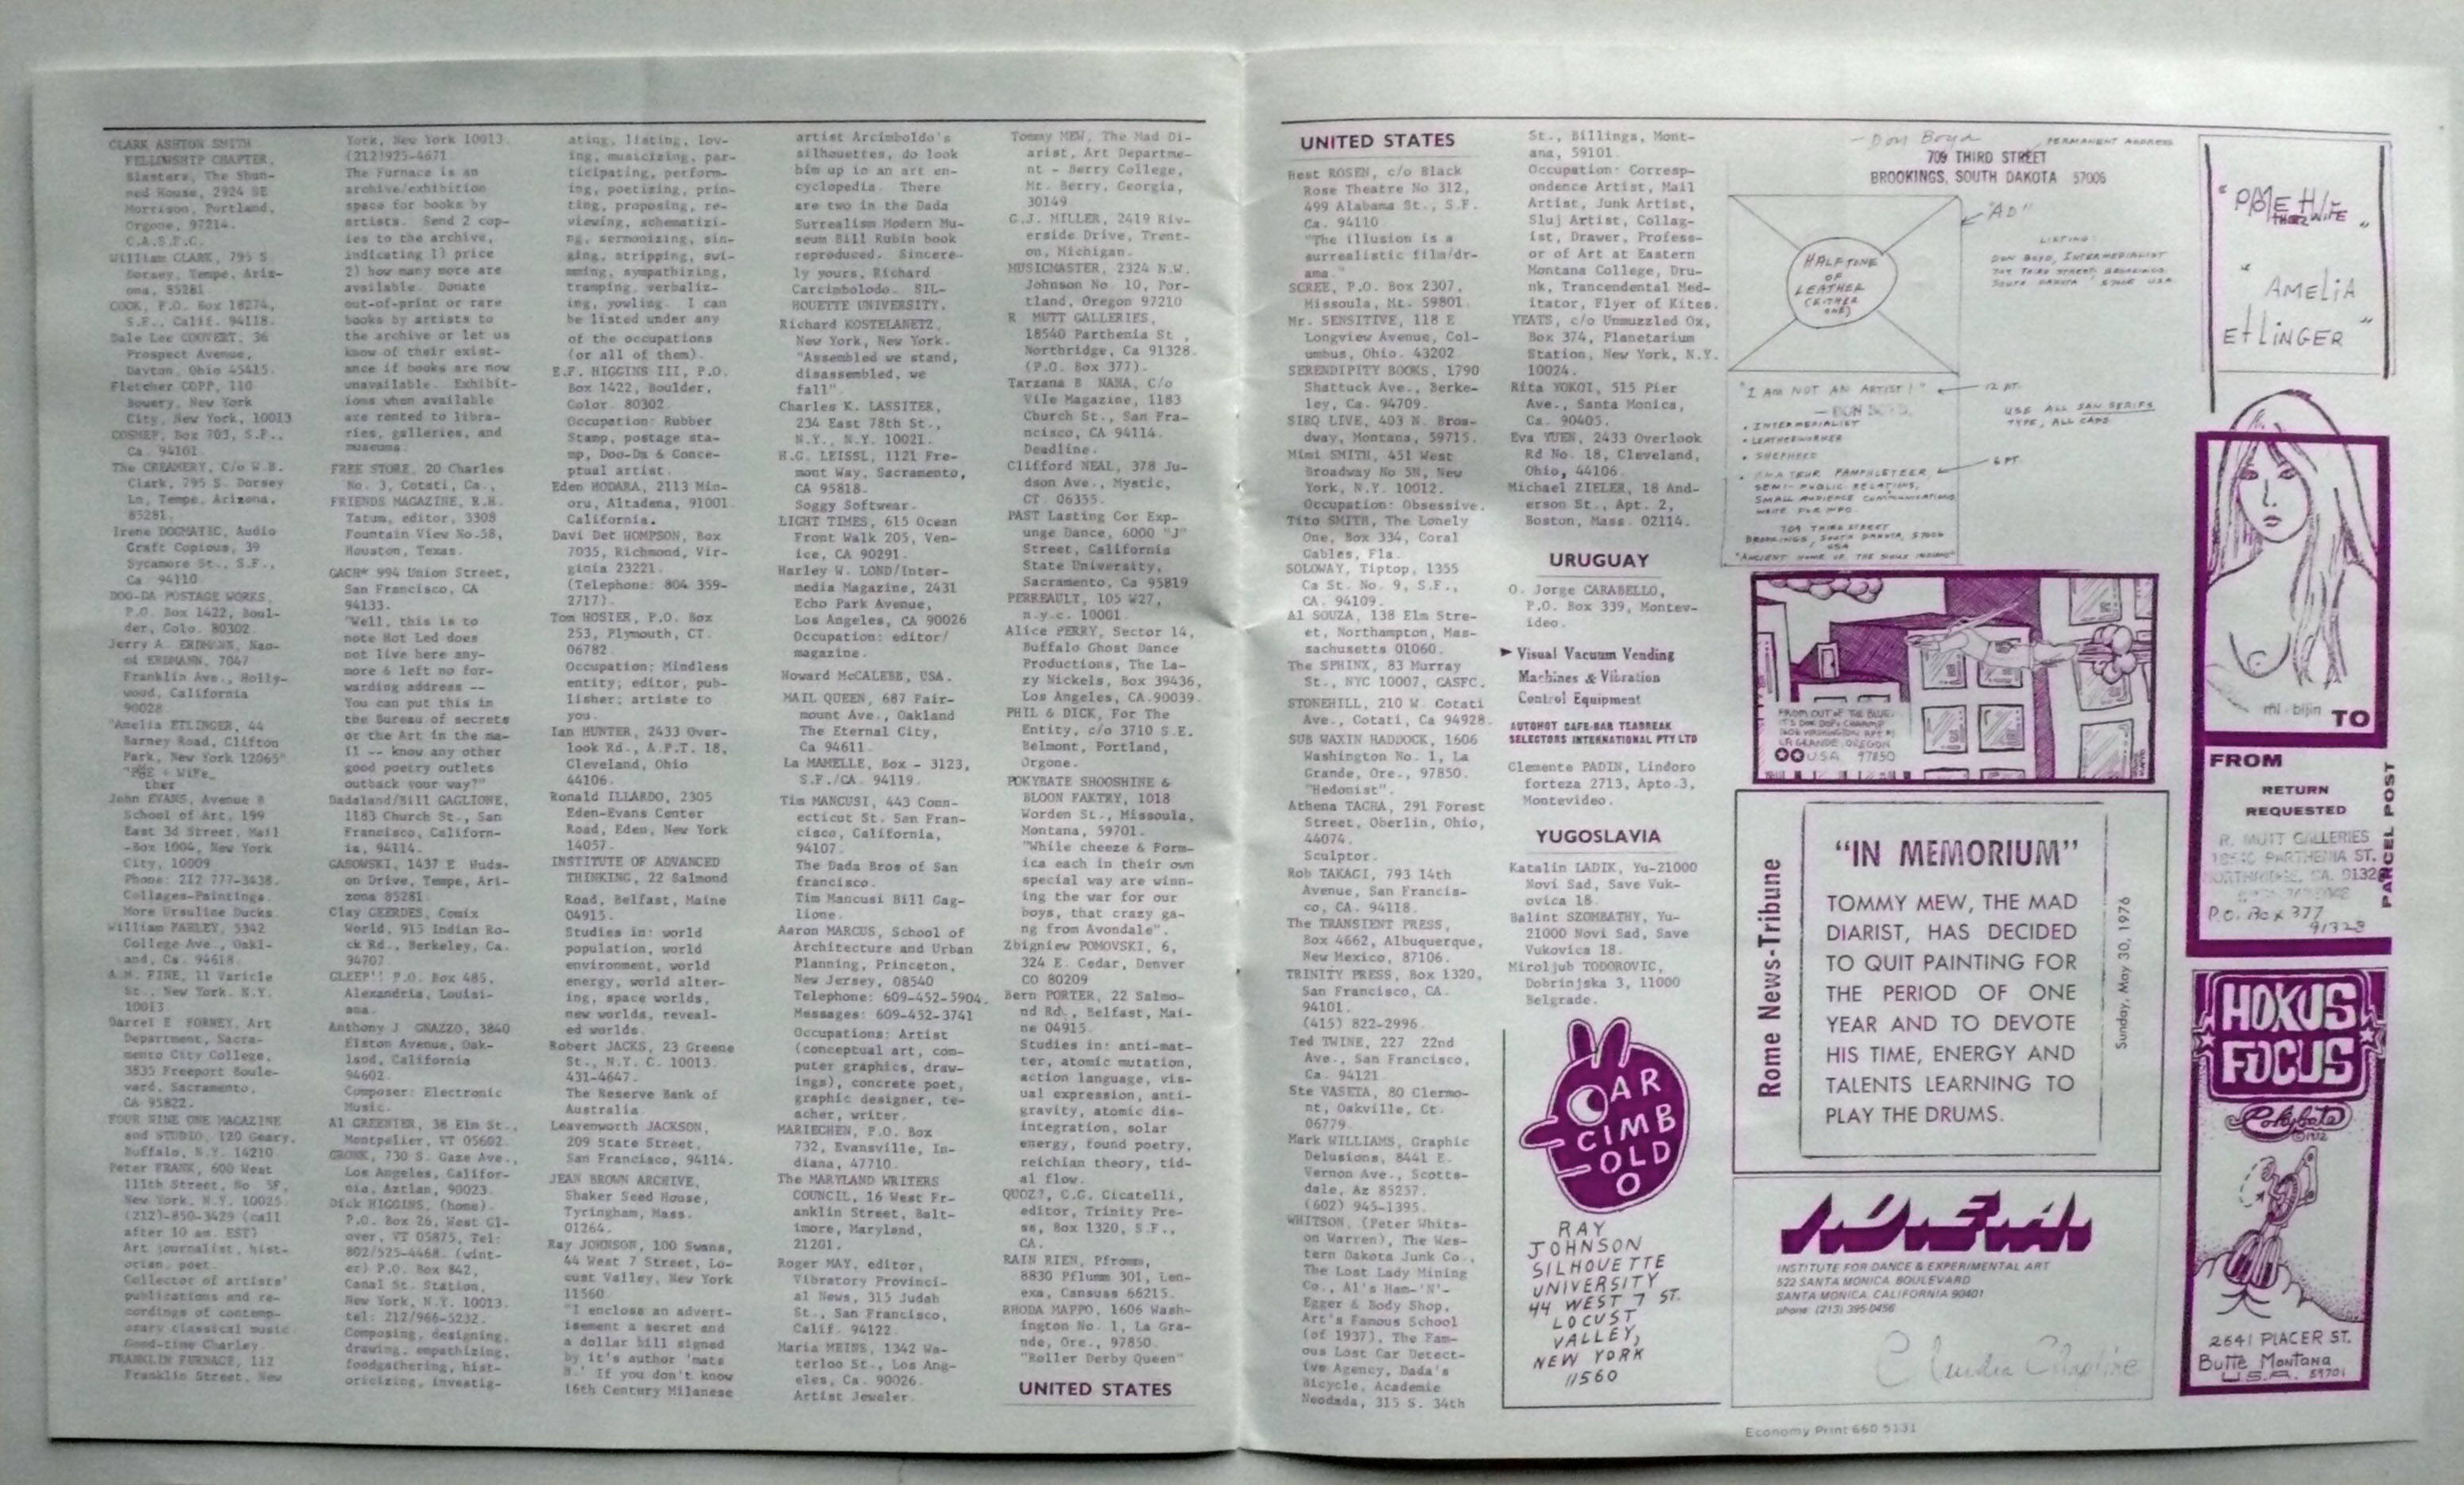 CLARK ASHTON SMITH
FELLOWSHIP CHAPTER,
Blasters, The Shun-
ned House, 2924 SE
Morrison, Portland,
Orgone, 97214.
C.A.S.F.C.
William CLARK, 795 S
Dorsey, Tempe, Ariz-
ona, 85281
COOK, P.O. Box 18274,
S.F., Calif. 94118.
Dale Lee COOVERT, 36
Prospect Avenue,
Dayton, Ohio 45415.
Fletcher COPP, 110
Bowery, New York
City, New York, 10013
COSMEP, Box 703, S.F.,
Ca. 94101
The CREAMERY, C/o W.B.
Clark, 795 S. Dorsey
Ln, Tempe, Arizona,
85281.
Irene DOGMATIC, Audio
Graft Copious, 39
Sycamore St., S.F.,
Ca 94110
DOO-DA POSTAGE WORKS,
P.O. Box 1422, Boul-
der, Colo. 80302.
Jerry A. ERDMANN, Nao-
mi ERDMANN, 7047
Franklin Ave., Holly-
wood, California
90028
"Amelia ETLINGER, 44
Barney Road, Clifton
Park, New York 12065"
ther
John EVANS, Avenue B
School of Art, 199
East 3d Street, Mail
-Box 1004, New York
City, 10009
Phone: 212 777-3438.
Collages-Paintings.
More Ursuline Ducks
William FARLEY, 5342
College Ave., Oakl-
and, Ca. 94618.
A.M. FINE, 11 Varick
St., New York. N.Y.
10013
Darrel E FORNEY, Art
Department, Sacra-
mento City College,
3835 Freeport Boule-
vard, Sacramento,
CA 95822.
FOUR NINE ONE MAGAZINE
and STUDIO, 120 Geary,
Buffalo, N.Y. 14210
Peter FRANK, 600 West
111th Street, No 5F,
New York, N.Y. 10025
(212)-850-3429 (call
after 10 am. EST)
Art journalist, hist-
orian, poet.
Collector of artists'
publications and re-
cordings of contemp-
orary classical music.
Good-time Charley.
FRANKLIN FURNACE, 112
Franklin Street, New
York, New York 10013.
(212)925-4671
The Furnace is an
archive/exhibition
space for books by
artists. Send 2 cop-
ies to the archive,
indicating 1) price
2) how many more are
available. Donate
out-of-print or rare
books by artists to
the archive or let us
know of their exist-
ance if books are now
unavailable. Exhibit-
ions when available
are rented to libra-
ries, galleries, and
museums.
FREE STORE, 20 Charles
No. 3, Cotati, Ca.,
FRIENDS MAGAZINE, R.H.
Tatum, editor, 3308
Fountain View No.58,
Houston, Texas.
GACH* 994 Union Street,
San Francisco, CA
94133.
"Well, this is to
note Hot Led does
not live here any-
more & left no for-
warding address --
You can put this in
the Bureau of secrets
or the Art in the ma-
il -- know any other
good poetry outlets
outback your way?"
Dadaland/Bill GAGLIONE,
1183 Church St., San
Francisco, Californ-
ia, 94114.
GASOWSKI, 1437 E Huds-
on Drive, Tempe, Ari-
zona 85281.
Clay GEERDES, Comix
World, 915 Indian Ro-
ck Rd., Berkeley, Ca.
94707
GLEEP!! P.O. Box 485,
Alexandria, Louisi-
ana.
Anthony J GNAZZO, 3840
Elston Avenue, Oak-
land, California
94602.
Composer: Electronic
Music.
Al GREENIER, 38 Elm St.,
Montpelier, VT 05602.
GRONK, 730 S. Gaze Ave.,
Los Angeles, Califor-
nia, Aztlan, 90023.
Dick HIGGINS, (home).
P.O. Box 26, West Gl-
over, VT 05875, Tel:
802/525-4468. (wint-
er) P.O. Box 842,
Canal St. Station,
New York, N.Y. 10013.
tel: 212/966-5232.
Composing, designing,
drawing, empathizing,
foodgathering, hist-
oricizing, investig-
ating, listing, lov-
ing, musicizing, par-
ticipating, perform-
ing, poetizing, prin-
ting, proposing, re-
viewing, schematizi-
ng, sermonizing, sin-
ging, stripping, swi-
mming, sympathizing,
tramping, verbaliz-
ing, yowling. I can
be listed under any
of the occupations
(or all of them).
E.F. HIGGINS III, P.O.
Box 1422, Boulder,
Color. 80302.
Occupation: Rubber
Stamp, postage sta-
mp, Doo-Da & Conce-
ptual artist.
Eden HODARA, 2113 Min-
oru, Altadena, 91001.
California.
Davi Det HOMPSON, Box
7035, Richmond, Vir-
ginia 23221.
(Telephone: 804 359-
2717).
Tom HOSIER, P.O. Box
253, Plymouth, CT.
06782.
Occupation: Mindless
entity; editor, pub-
lisher; artiste to
you.
Ian HUNTER, 2433 Over-
look Rd., A.P.T. 18,
Cleveland, Ohio
44106.
Ronald ILLARDO, 2305
Eden-Evans Center
Road, Eden, New York
14057.
INSTITUTE OF ADVANCED
THINKING, 22 Salmond
Road, Belfast, Maine
04915.
Studies in: world
population, world
environment, world
energy, world alter-
ing, space worlds,
new worlds, reveal-
ed worlds.
Robert JACKS, 23 Greene
St., N.Y. C. 10013.
431-4647.
The Reserve Bank of
Australia.
Leavenworth JACKSON,
209 State Street,
San Francisco, 94114.
JEAN BROWN ARCHIVE,
Shaker Seed House,
Tyringham, Mass.
01264.
Ray JOHNSON, 100 Swans,
44 West 7 Street, Lo-
cust Valley, New York
11560
"I enclose an advert-
isement a secret and
a dollar bill signed
by it's author 'mats
B.' If you don't know
16th Century Milanese
artist Arcimboldo's
silhouettes, do look
him up in an art en-
cyclopedia. There
are two in the Dada
Surrealism Modern Mu-
seum Bill Rubin book
reproduced. Sincere-
ly yours, Richard
Carcimbolodo. SIL-
HOUETTE UNIVERSITY.
Richard KOSTELANETZ,
New York, New York.
"Assembled we stand,
disassembled, we
fall".
Charles K. LASSITER,
234 East 78th St.,
N.Y., N.Y. 10021.
H.G. LEISSL, 1121 Fre-
mont Way, Sacramento,
CA 95818.
Soggy Softwear.
LIGHT TIMES, 615 Ocean
Front Walk 205, Ven-
ice, CA 90291.
Harley W. LOND/Inter-
media Magazine, 2431
Echo Park Avenue,
Los Angeles, CA 90026
Occupation: editor/
magazine.
Howard McCALEBB, USA.
MAIL QUEEN, 687 Fair-
mount Ave., Oakland
The Eternal City,
Ca 94611.
La MAMELLE, Box - 3123,
S.F./CA. 94119.
Tim MANCUSI, 443 Conn-
ecticut St. San Fran-
cisco, California,
94107.
The Dada Bros of San
francisco.
Tim Mancusi Bill Gag-
lione.
Aaron MARCUS, School of
Architecture and Urban
Planning, Princeton,
New Jersey, 08540
Telephone: 609-452-5904.
Messages: 609-452-3741
Occupations: Artist
(conceptual art, com-
puter graphics, draw-
ings), concrete poet,
graphic designer, te-
acher, writer.
MARIECHEN, P.O. Box
732, Evansville, In-
diana, 47710.
The MARYLAND WRITERS
COUNCIL, 16 West Fr-
anklin Street, Balt-
imore, Maryland,
21201.
Roger MAY, editor,
Vibratory Provinci-
al News, 315 Judah
St., San Francisco,
Calif. 94122.
Maria MEISS, 1342 Wa-
terloo St., Los Ang-
eles, Ca. 90026.
Artist Jeweler.
Tommy MEW, The Mad Di-
arist, Art Departme-
nt - Berry College,
Mt. Berry, Georgia,
30149
G.J. MILLER, 2419 Riv-
erside Drive, Trent-
on, Michigan.
MUSICMASTER, 2324 N.W.
Johnson No 10, Por-
tland, Oregon 97210
R MUTT GALLERIES,
18540 Parthenia St.,
Northridge, Ca 91328.
(P.O. Box 377).
Tarzana B NANA, C/o
Vile Magazine, 1183
Church St., San Fra-
ncisco, CA 94114.
Deadline.
Clifford NEAL, 378 Ju-
dson Ave., Mystic,
CT. 06355.
PAST Lasting Cor Exp-
unge Dance, 6000 "J"
Street, California
State University,
Sacramento, Ca 95819
PERREAULT, 105 W27,
n.y.c. 10001.
Alice PERRY, Sector 14,
Buffalo Ghost Dance
Productions, The La-
zy Nickels, Box 39436,
Los Angeles, CA.90039.
PHIL & DICK, For The
Entity, c/o 3710 S.E.
Belmont, Portland,
Orgone.
POKYBATE SHOOSHINE &
BLOON FAKTRY, 1018
Worden St., Missoula,
Montana, 59701.
"While cheeze & Form-
ica each in their own
special way are winn-
ing the war for our
boys, that crazy ga-
ng from Avondale".
Zbigniew POMOVSKI, 6,
324 E. Cedar, Denver
CO 80209
Bern PORTER, 22 Salmo-
nd Rd., Belfast, Mai-
ne 04915.
Studies in: anti-mat-
ter, atomic mutation,
action language, vis-
ual expression, anti-
gravity, atomic dis-
integration, solar
energy, found poetry,
reichian theory, tid-
al flow.
QUOZ?, C.G. Cicatelli,
editor, Trinity Pre-
ss, Box 1320, S.F.,
CA.
RAIN RIEN, Pfromm,
8830 Pflumm 301, Len-
exa, Cansuss 66215.
RHODA MAPPO, 1606 Wash-
ington No. 1, La Gra-
nde, Ore., 97850.
"Roller Derby Queen"
UNITED STATES
UNITED STATES
Rest ROSEN, c/o Black
Rose Theatre No 312,
499 Alabama St., S.F.
Ca. 94110
"The illusion is a
surrealistic film/dr-
ama."
SCREE, P.O. Box 2307,
Missoula, Mt. 59801.
Mr. SENSITIVE, 118 E
Longview Avenue, Col-
umbus, Ohio. 43202.
SERENDIPITY BOOKS, 1790
Shattuck Ave., Berke-
ley, Ca. 94709.
SIRQ LIVE, 403 N. Broa-
dway, Montana, 59715.
Mimi SMITH, 451 West
Broadway No 5N, New
York, N.Y. 10012.
Occupation: Obsessive.
Tito SMITH, The Lonely
One, Box 334, Coral
Gables, Fla.
SOLOWAY, Tiptop, 1355
Ca St. No. 9, S.F.,
CA. 94109.
Al SOUZA, 138 Elm Stre-
et, Northampton, Mas-
sachusetts 01060.
The SPHINX, 83 Murray
St., NYC 10007, CASFC.
STONEHILL, 210 W. Cotati
Ave., Cotati, Ca 94928.
SUB WAXIN HADDOCK, 1606
Washington No. 1, La
Grande, Ore., 97850.
"Hedonist".
Athena TACHA, 291 Forest
Street, Oberlin, Ohio,
44074.
Sculptor.
Rob TAKAGI, 793 14th
Avenue, San Francis-
co, CA. 94118.
The TRANSIENT PRESS,
Box 4662, Albuquerque,
New Mexico, 87106.
TRINITY PRESS, Box 1320,
San Francisco, CA.
94101.
(415) 822-2996.
Ted TWINE, 227 22nd
Ave., San Francisco,
Ca. 94121
Ste VASETA, 80 Clermo-
nt, Oakville, Ct.
06779.
Mark WILLIAMS, Graphic
Delusions, 8441 E.
Vernon Ave., Scotts-
dale, Az 85257.
(602) 945-1395.
WHITSON, (Peter Whits-
on Warren), The Wes-
tern Dakota Junk Co.,
The Lost Lady Mining
Co., Al's Ham-'N'-
Egger & Body Shop,
Art's Famous School
(of 1937), The Fam-
ous Lost Car Detect-
ive Agency, Dada's
Bicycle, Academie
Neodada, 315 S. 34th
St., Billings, Mont-
ana, 59101.
Occupation: Corresp-
ondence Artist, Mail
Artist, Junk Artist,
Sluj Artist, Collag-
ist, Drawer, Profess-
or of Art at Eastern
Montana College, Dru-
nk, Trancendental Med-
itator, Flyer of Kites.
YEATS, c/o Unmuzzled Ox,
Box 374, Planetarium
Station, New York, N.Y.
10024.
Rita YOKOI, 515 Pier
Ave., Santa Monica,
Ca. 90405.
Eva YUEN, 2433 Overlook
Rd No. 18, Cleveland,
Ohio, 44106.
Michael ZIELER, 18 And-
erson St., Apt. 2,
Boston, Mass. 02114.
URUGUAY
O. Jorge CARABELLO,
P.O. Box 339, Montev-
ideo.
Visual Vacuum Vending
Machines & Vibration
Control Equipment
AUTOHOT CAFE-BAR TEABREAK
SELECTORS INTERNATIONAL PTY LTD
Clemente PADIN, Lindoro
forteza 2713, Apto.3,
Montevideo.
YUGOSLAVIA
Katalin LADIK, Yu-21000
Novi Sad, Save Vuk-
ovica 18.
Balint SZOMBATHY, Yu-
21000 Novi Sad, Save
Vukovica 18.
Miroljub TODOROVIC,
Dobrinjska 3, 11000
Belgrade.
CAR
CIMB
OLD
O
RAY
JOHNSON
SILHOUETTE
UNIVERSITY
44 WEST 7 ST.
LOCUST
VALLEY,
NEW YORK
11560
— Don Boyd
PERMANENT ADDRESS
709 THIRD STREET
BROOKINGS, SOUTH DAKOTA 57006
"AD"
HALFTONE
OF
LEATHER
(EITHER
ONE)
LISTING:
DON BOYD, INTERMEDIALIST
709 THIRD STREET, BROOKINGS
SOUTH DAKOTA 57006 USA
"I AM NOT AN ARTIST!"
12 PT.
— DON BOYD
USE ALL SAN SERIFS
TYPE, ALL CAPS
• INTERMEDIALIST
• LEATHERWORKER
• SHEPHERD
• AMATEUR PAMPHLETEER
6 PT.
SEMI-PUBLIC RELATIONS,
SMALL AUDIENCE COMMUNICATIONS
WRITE FOR INFO
709 THIRD STREET
BROOKINGS, SOUTH DAKOTA, 57006
USA
"ANCIENT HOME OF THE SIOUX INDIANS"
FROM OUT OF THE BLUE
LA GRANDE, OREGON
USA 97850
Rome News-Tribune
"IN MEMORIUM"
TOMMY MEW, THE MAD
DIARIST, HAS DECIDED
TO QUIT PAINTING FOR
THE PERIOD OF ONE
YEAR AND TO DEVOTE
HIS TIME, ENERGY AND
TALENTS LEARNING TO
PLAY THE DRUMS.
Sunday, May 30, 1976
I.D.E.A.
INSTITUTE FOR DANCE & EXPERIMENTAL ART
522 SANTA MONICA BOULEVARD
SANTA MONICA, CALIFORNIA 90401
phone: (213) 395-0456
Economy Print 660 5131
"AMELIA
ETLINGER"
mi-bijin
TO
FROM
RETURN
REQUESTED
PARCEL POST
R. MUTT GALLERIES
PARTHENIA ST.
NORTHRIDGE, CA. 91328
P.O. Box 377
91328
HOKUS
FOCUS
Pokybate
©1972
2641 PLACER ST.
Butte Montana
U.S.A. 59701